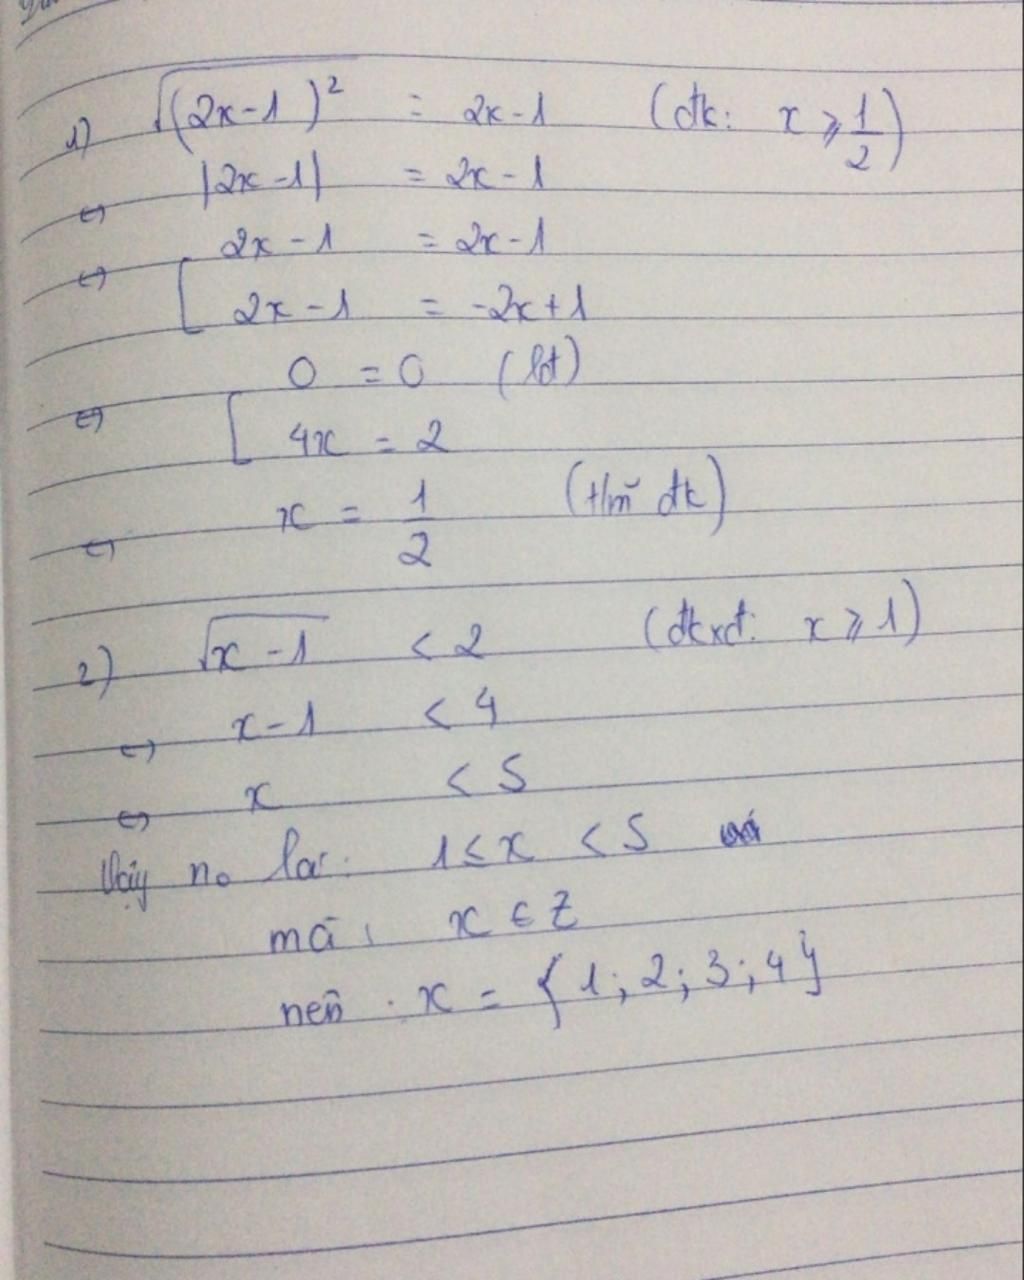 1) √(2x-1)² = 2x-1 (đk: x ⩾ 1/2)
⇔ |2x-1| = 2x-1
⇔ [ 2x-1 = 2x-1
2x-1 = -2x+1
⇔ [ 0 = 0 (lđ)
4x = 2
⇔ x = 1/2 (t/m đk)
2) √x-1 < 2 (đkxđ: x ⩾ 1)
⇔ x-1 < 4
⇔ x < 5
Vậy no là: 1 ≤ x < 5
mà x ∈ Z
nên x = {1; 2; 3; 4}